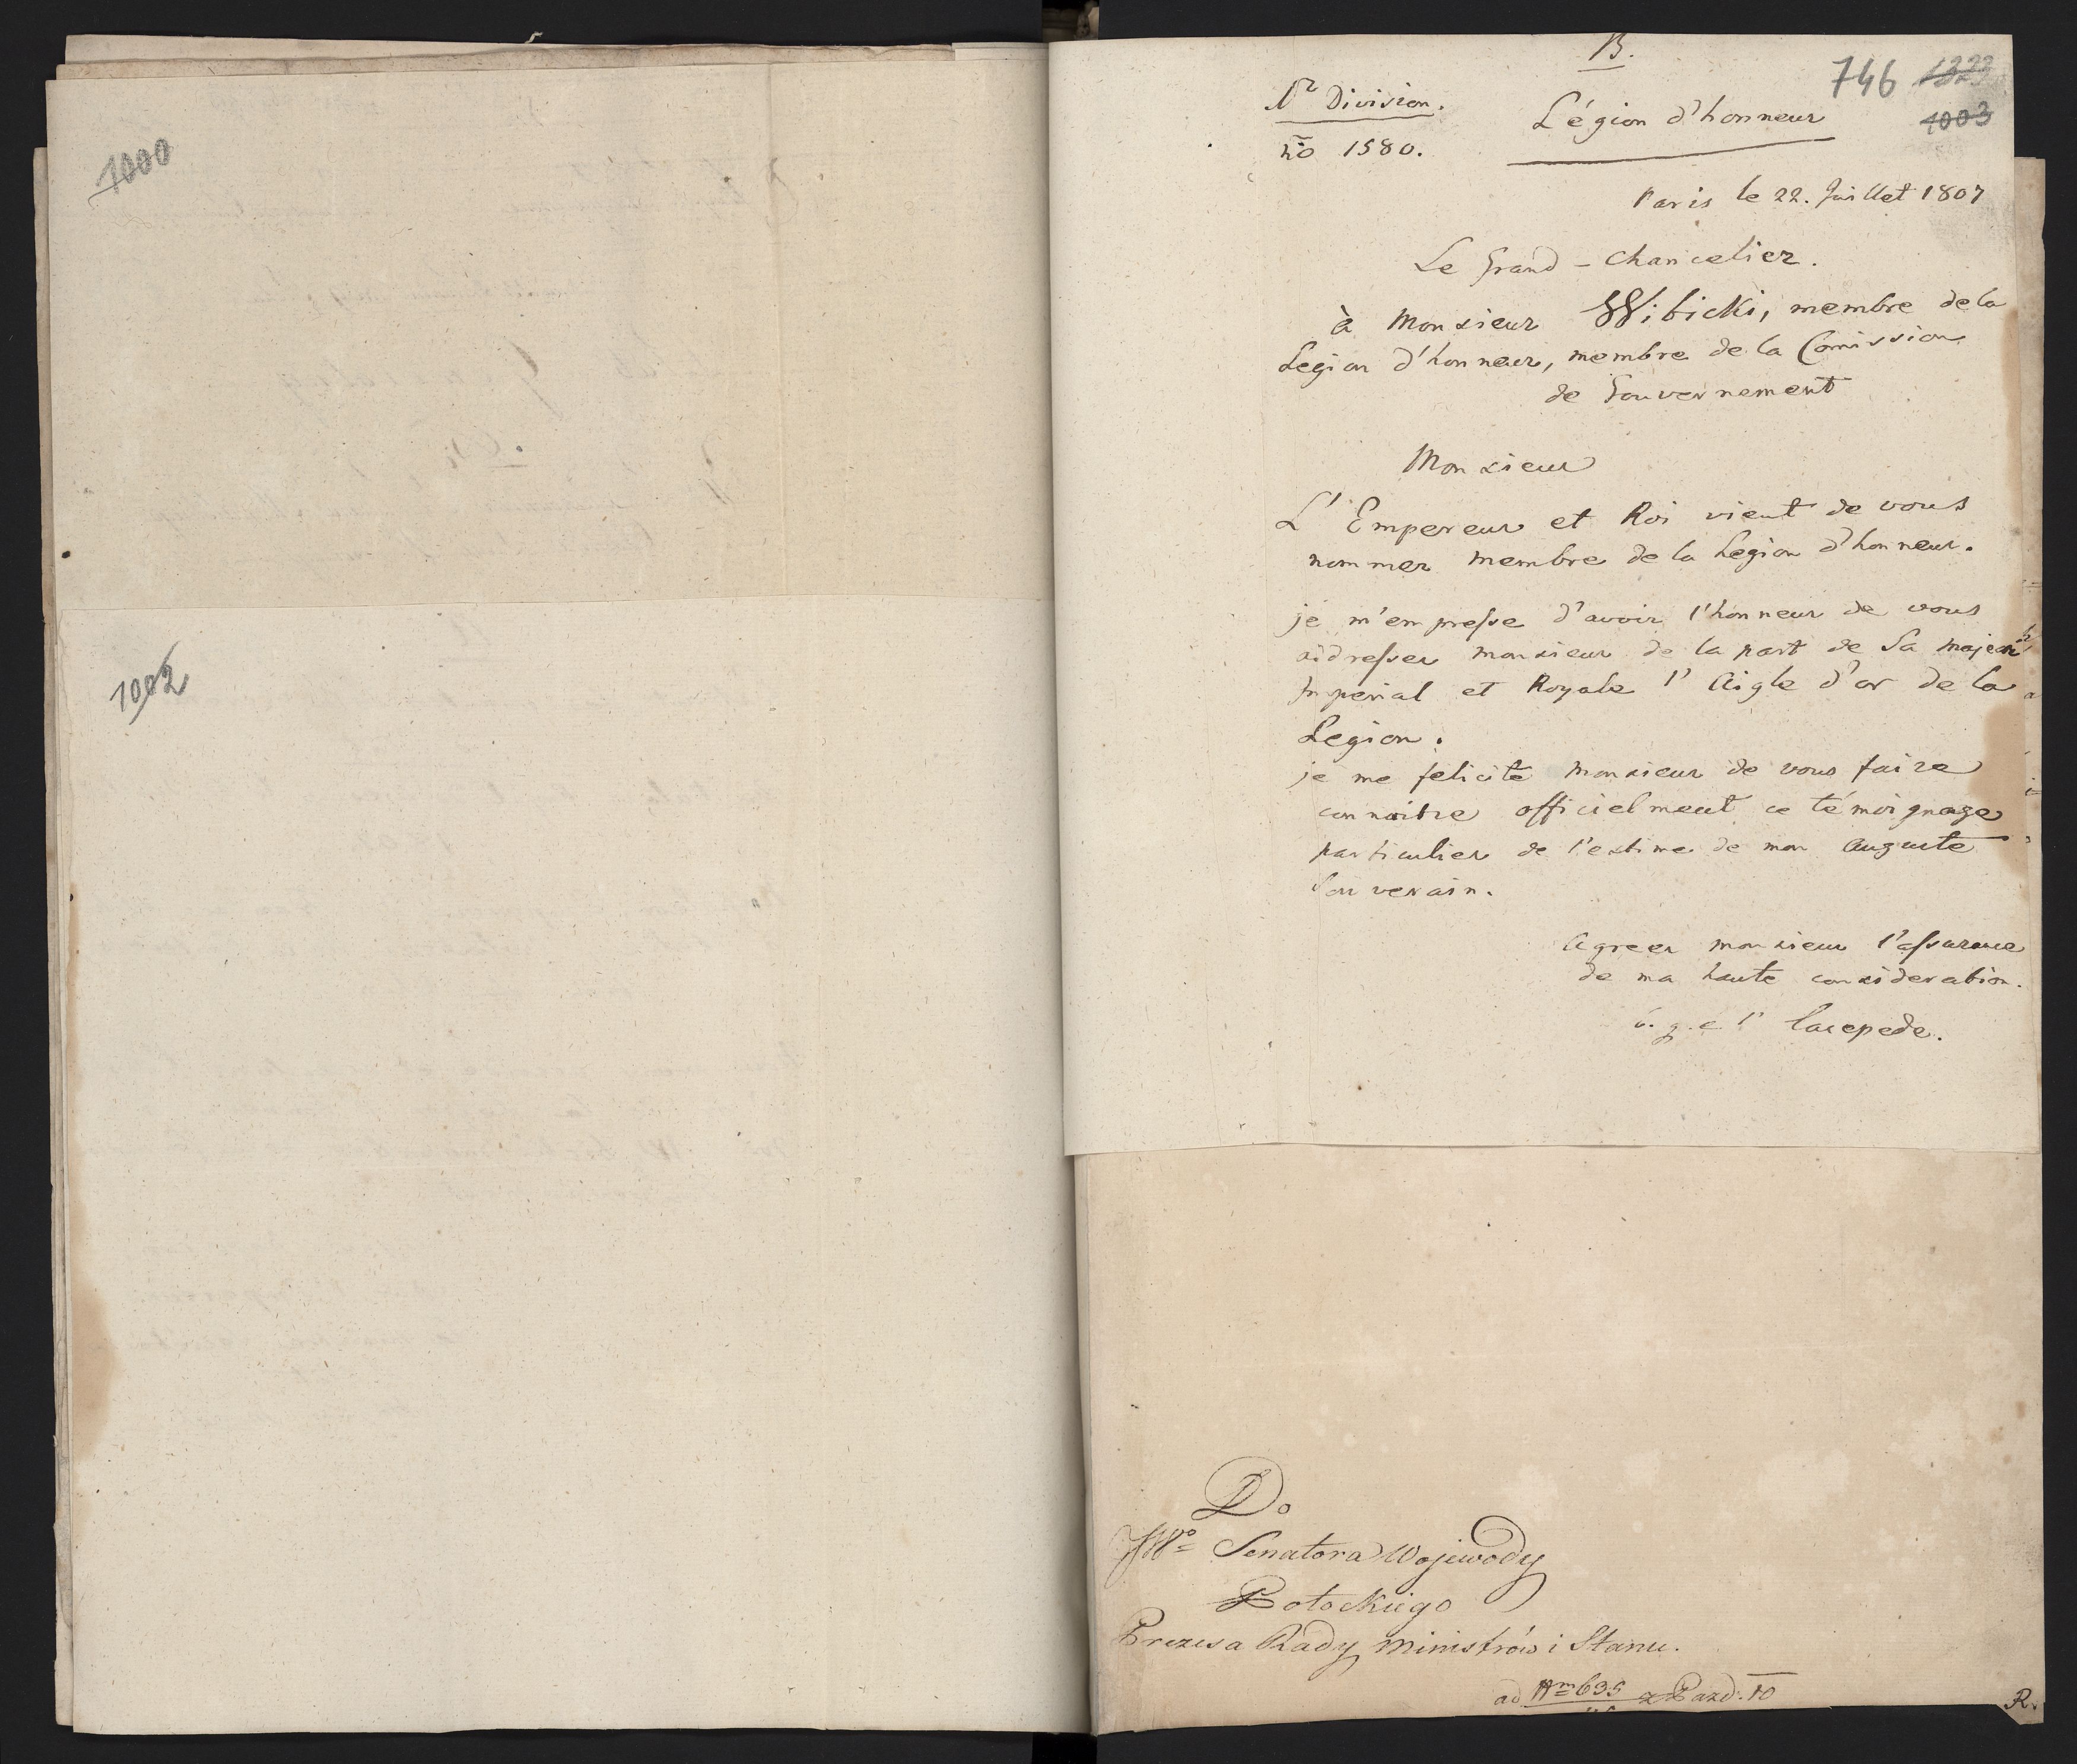 1000
1002
B.
746 1323
1003
1r Division.
Légion d'honneur
no 1580.
Paris le 22. Juillet 1807
Le Grand - Chancelier.
à Monsieur Wibicki, membre de la
Legion d'honneur, membre de la Comission
de Gouvernement
Monsieur
L'Empereur et Roi vient de vous
nommer membre de la Legion d'honneur.
je m'empresse d'avoir l'honneur de vous
addresser monsieur de la part de Sa majesté
Imperial et Royale l'Aigle d'or de la
Legion.
je me felicite monsieur de vous faire
connoitre officielment ce témoignage
particulier de l'estime de mon Auguste
Souverain.
Agreer monsieur l'assurance
de ma haute consideration.
Lacepede.
Do
JWo Senatora Wojewody
Potockiego
Prezesa Rady Ministrów i Stanu.
ad Nm 635 z Pazd. 10
R.